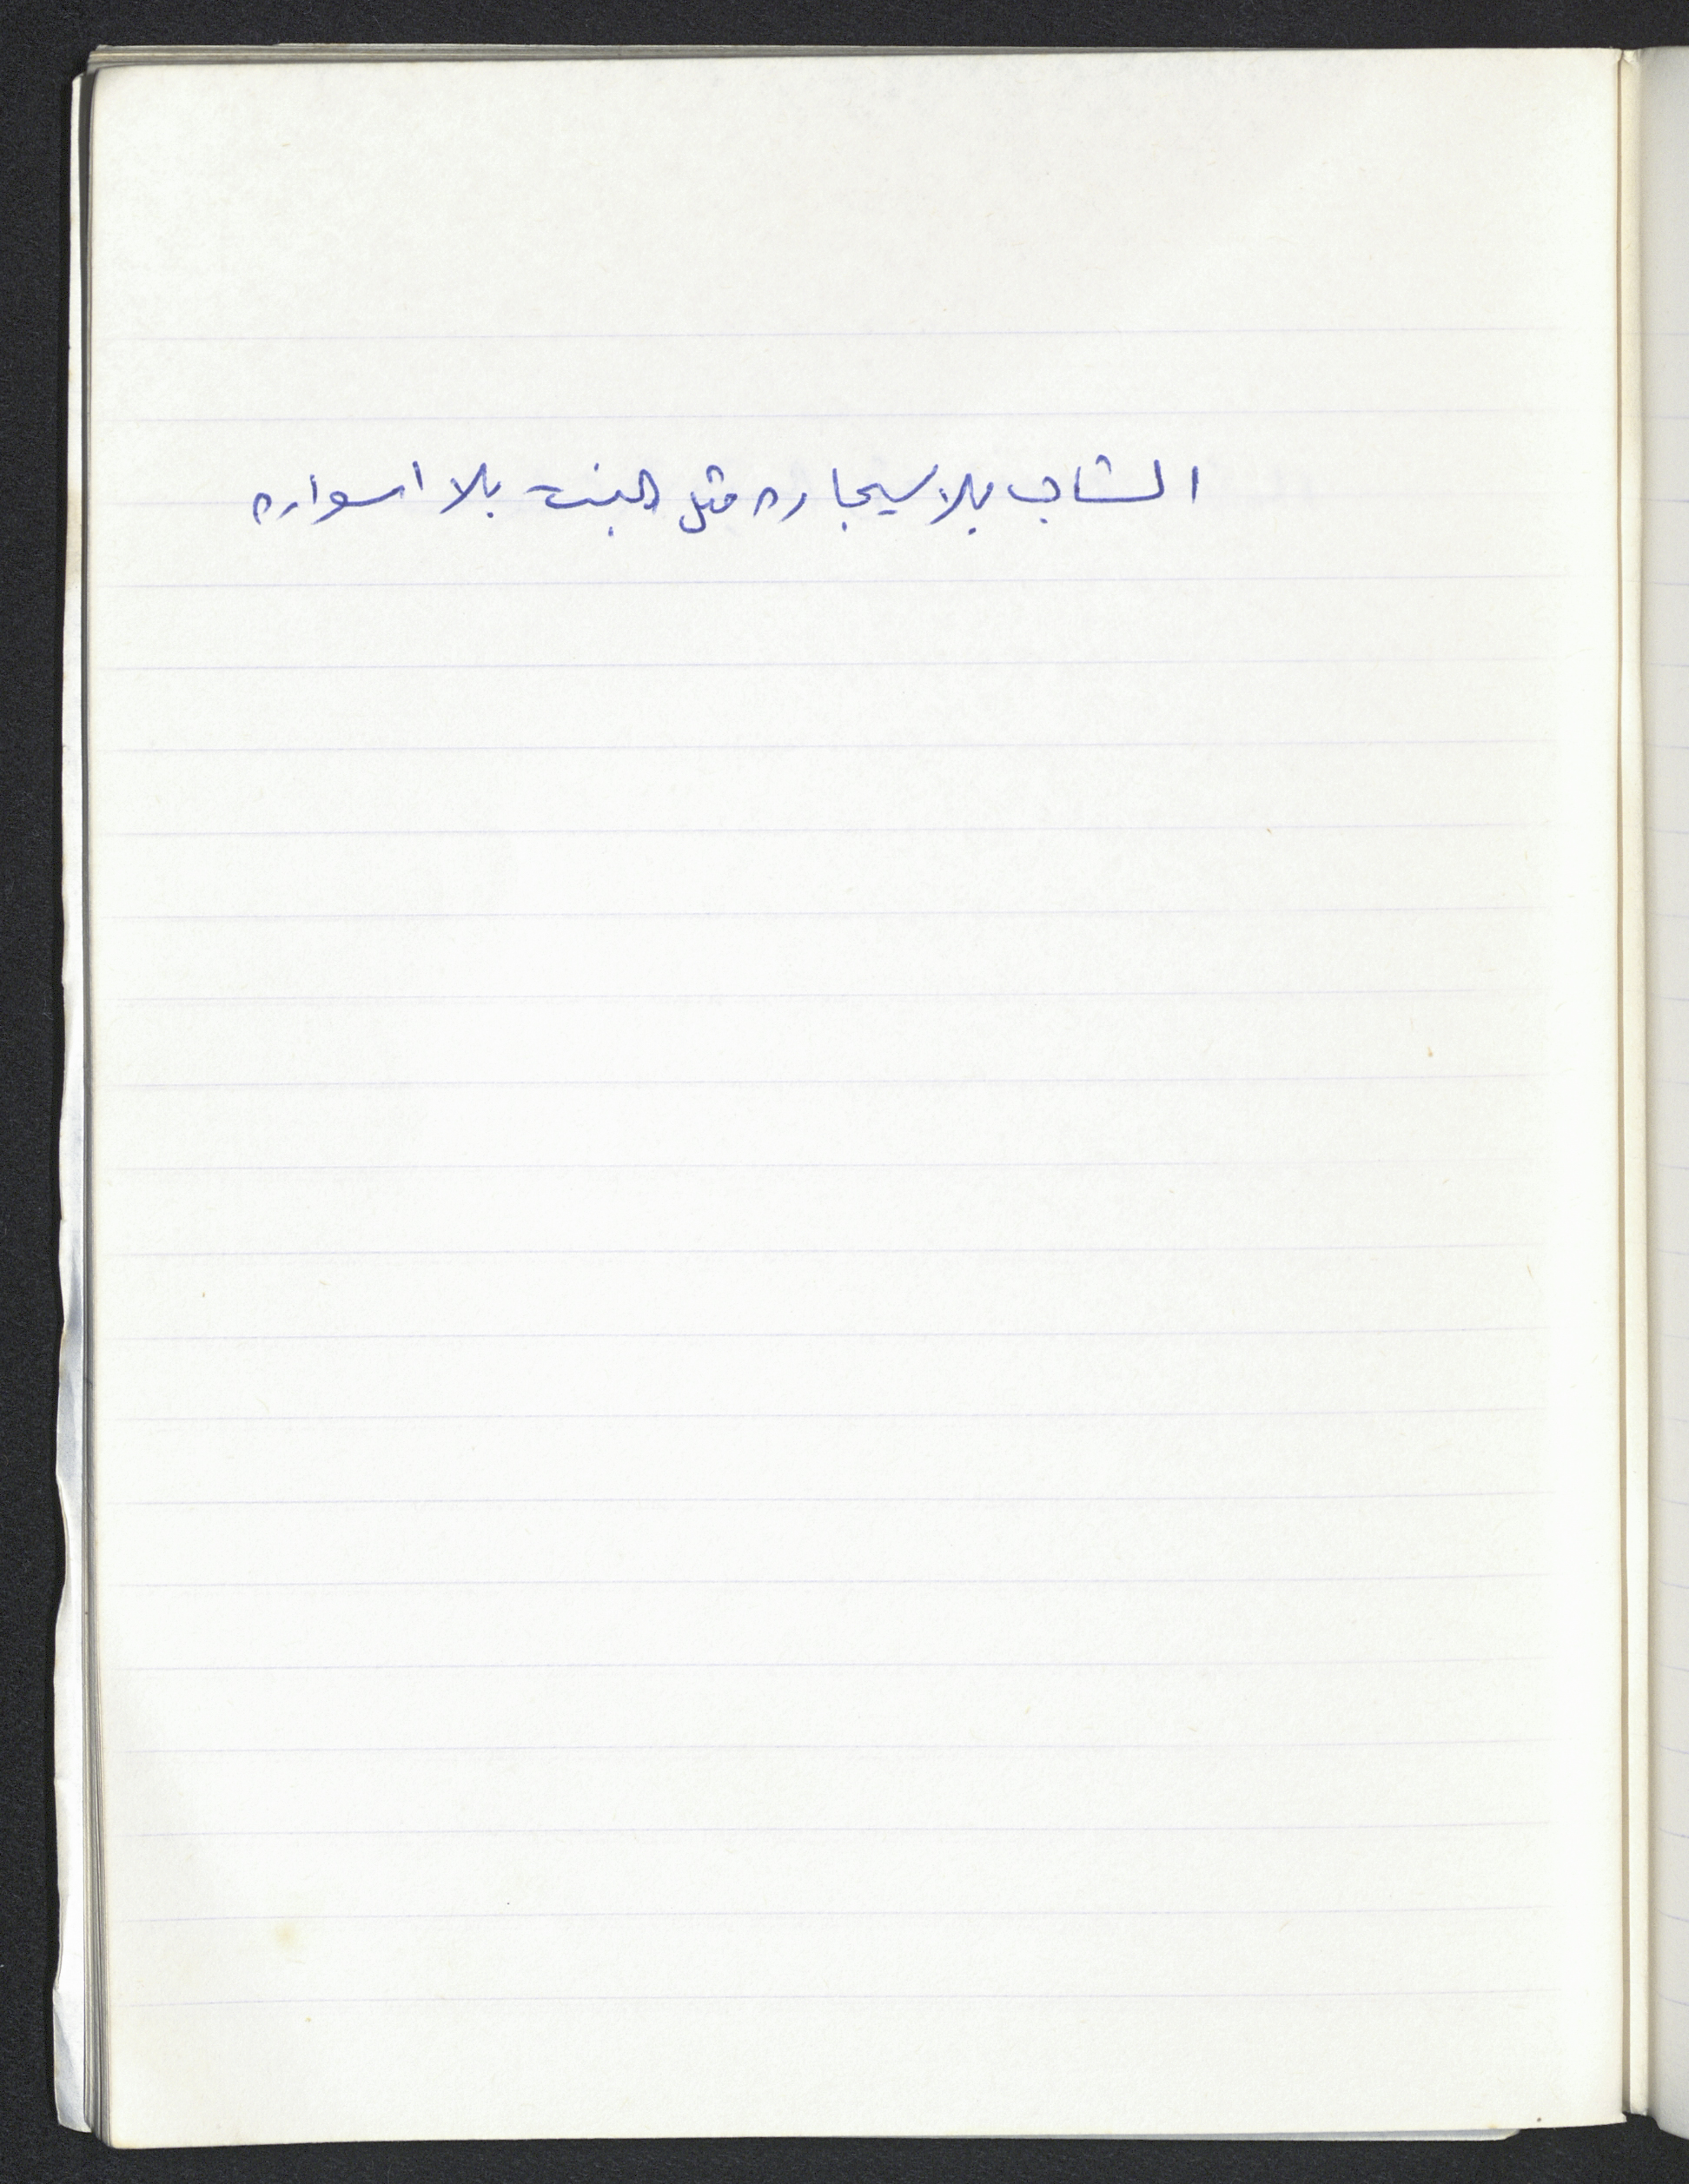 الشاب بلا سيجاره مثل البنت بلا اسواره